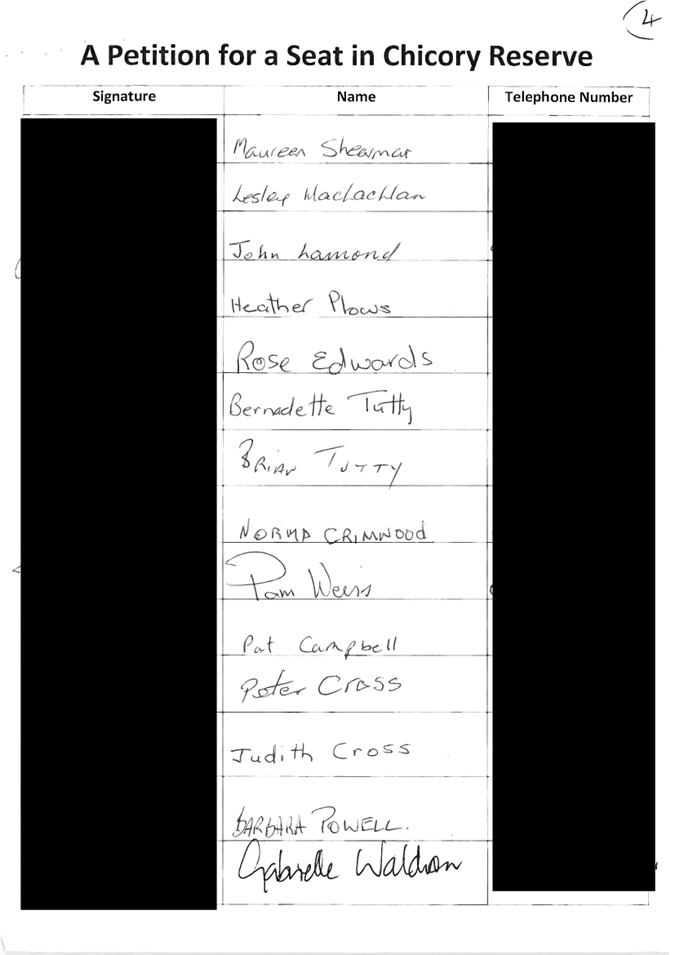 4
A Petition for a Seat in Chicory Reserve
Signature Name Telephone Number
Maureen Shearmar
Lesley MacLachlan
John Lamond
Heather Plows
Rose Edwards
Bernadette Tutty
BRIAN TUTTY
NORMA CRIMWOOD
Pam Weiss
Pat Campbell
Peter Cross
Judith Cross
BARBARA POWELL.
Gabrielle Waldron